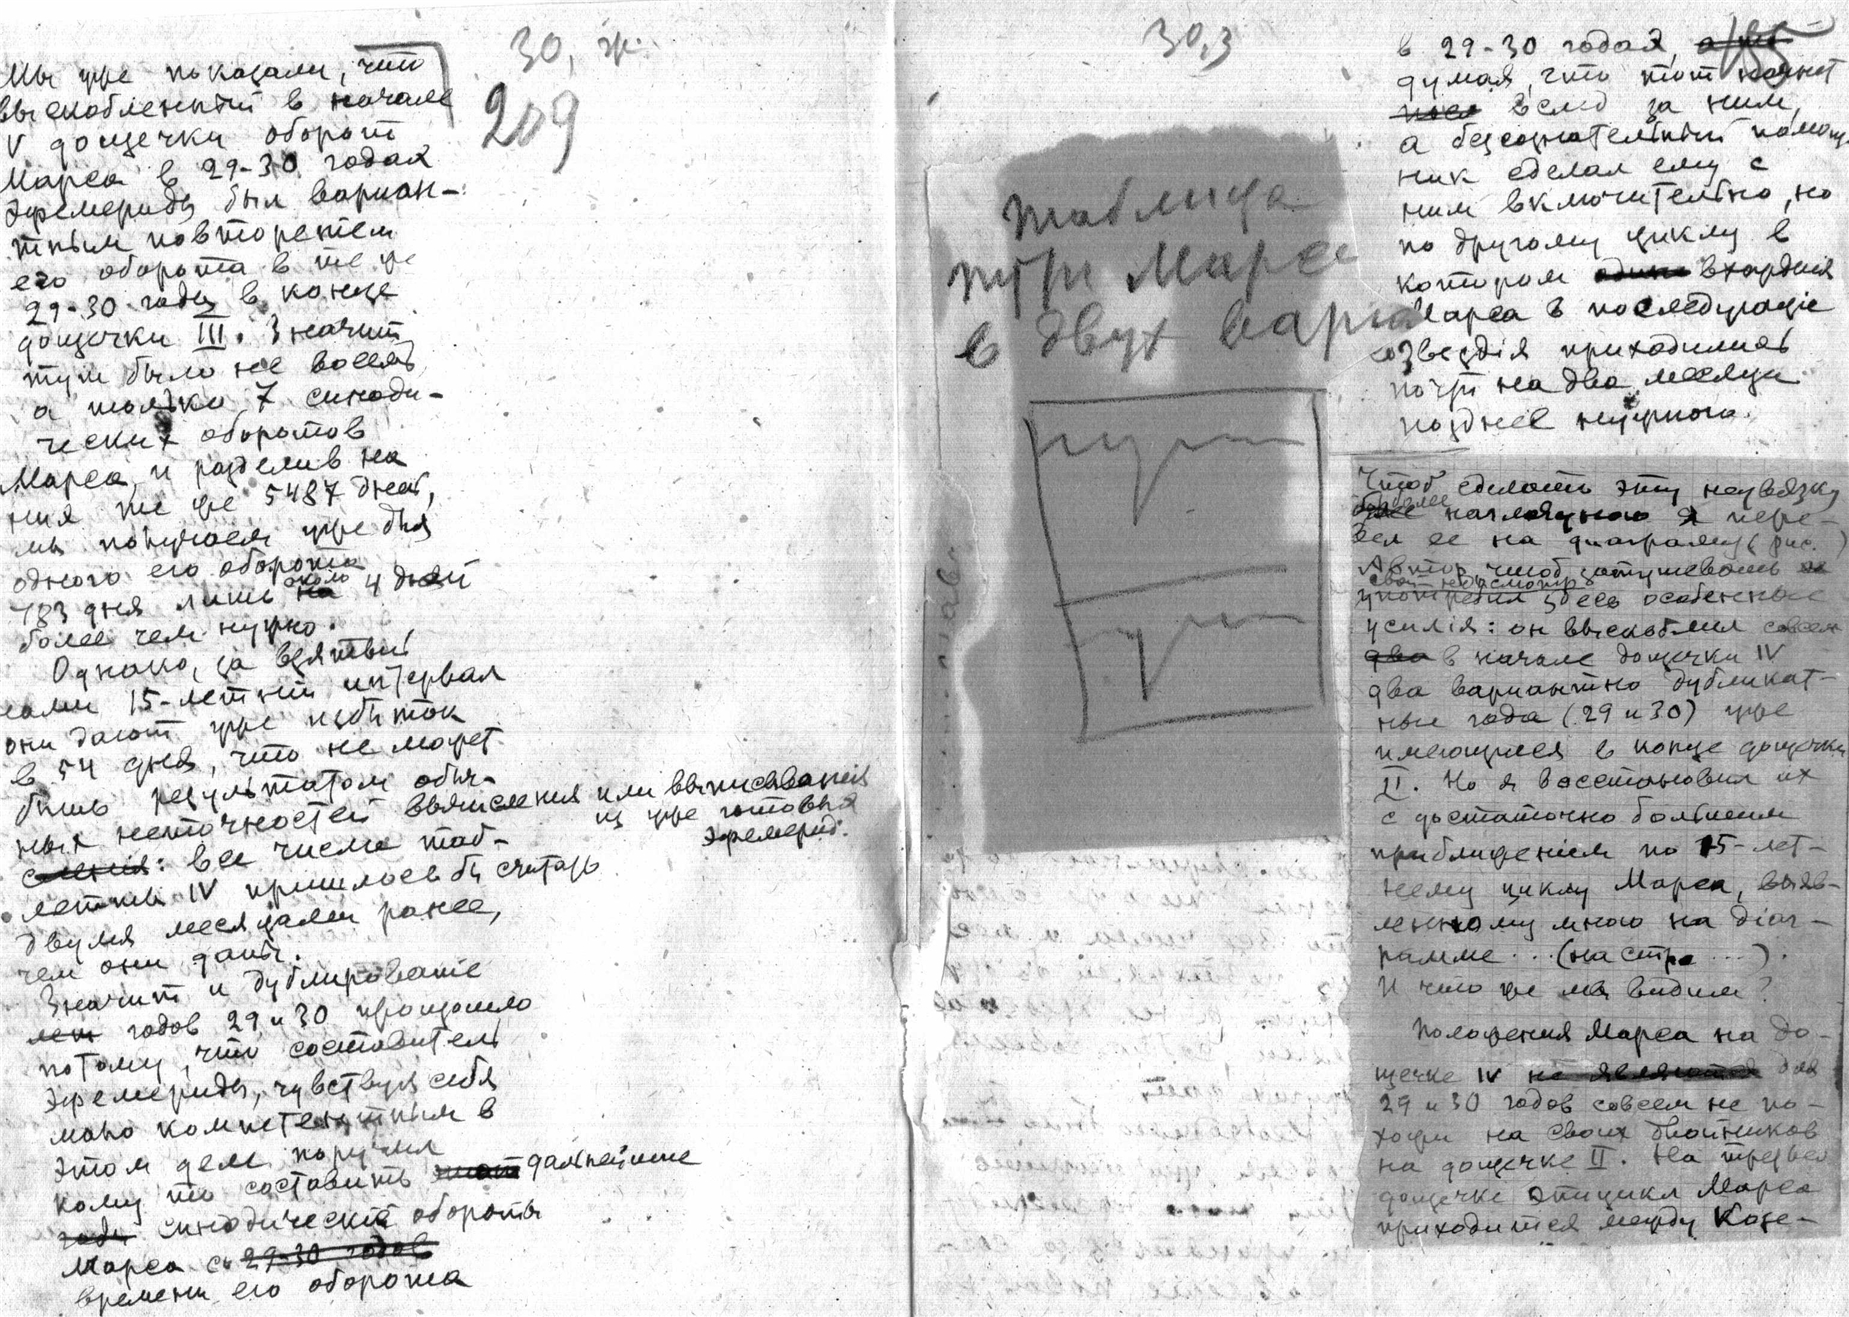 30, ж.
209
Мы уже показали, что
выскобленный в начале
V дощечки оборот
Марса в 29-30 годах
Эфемериды был вариан-
тным повторением
его оборота в те же
29-30 годы в конце
дощечки III. Значит
тут было не восемь,
а только 7 синоди-
ческих оборотов
Марса, и разделив на
них те же 5487 дней,
мы получаем уже для
одного его оборота
783 дня лишь около на 4 дней
более чем нужно.
Однако, за взятый
нами 15-летний интервал
они дают уже избыток
в 54 дня, что не может
быть результатом обыч-
ных неточностей вычисления или выписывания
из уже готовых
эфемерид.
сления: все числа таб-
летки IV пришлось бы считать
двумя месяцами ранее,
чем они даны.
Значит и дублирование
лет годов 29 и 30 произошло
потому, что составитель
Эфемериды, чувствуя себя
мало компетентным в
этом деле поручил
кому то составить дальнейшие
годы синодические обороты
Марса с 29-30 годов
времени его оборота
30,з
185
Таблица
пути Марса
в двух вариа
пути
V
пути
V
в 29-30 годах, а
думая, что тот начнет
после вслед за ним,
а бессознательный помощ-
ник сделал ему с
ним включительно, но
по другому циклу в
котором вхождения
Марса в последующие
созвездия приходились
почти на два месяца
позднее нужного.
Чтоб сделать эту неувязку
более наглядною я пере-
вел ее на диаграмму (рис. )
Автор, чтоб затушевать
свой недосмотр
употребил здесь особенные
усилия: он выскоблил совсем
два в начале дощечки IV
два вариантно дубликат-
ные года (29 и 30) уже
имеющиеся в конце дощечки
II. Но я восстановил их
с достаточно большим
приближением по 15-лет-
нему циклу Марса, выяв-
ленному мною на диаг-
рамме ... (на стр. ...).
И что же мы видим?
Положения Марса на до-
щечке IV не являются для
29 и 30 годов совсем не по-
хожи на своих двойников
на дощечке II. На
дощечке эпицикл Марса
приходится между Козе-